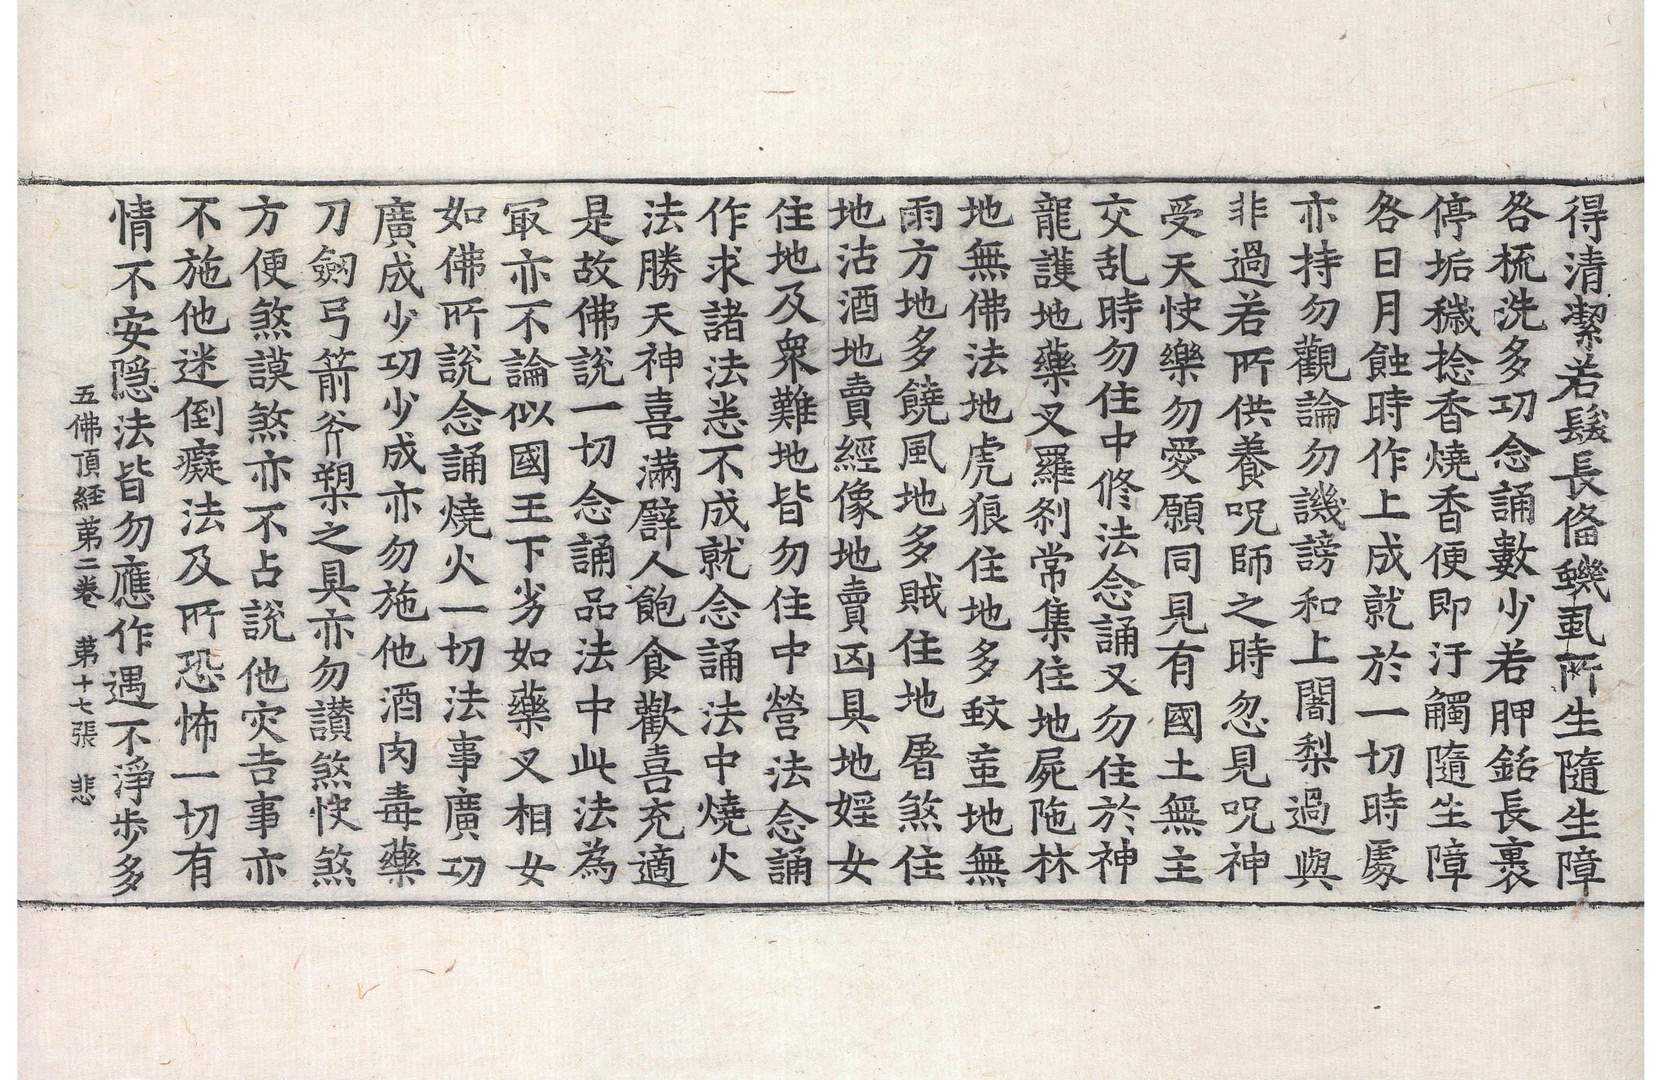 得清潔若鬚長俻蟣虱所生隨生障
各梳洗多功念誦數少若胛銛長裹
停垢穢捻香燒香便即汙觸隨生障
各日月蝕時作上成就於一切時處
亦持勿觀論勿譏謗和上闍梨過與
非過若所供養呪師之時忽見呪神
受天快樂勿愛願同見有國土無主
交乱時勿住中俢法念誦又勿住於神
龍護地藥叉羅剎常集住地屍陁林
地無佛法地虎狼住地多蚊䖟地無
雨方地多饒風地多賊住地屠煞住
地沽酒地賣經像地賣凶具地婬女
住地及衆難地皆勿住中營法念誦
作求諸法悉不成就念誦法中燒火
法勝天神喜滿譬人飽食歡喜充適
是故佛說一切念誦品法中此法為
㝡亦不論似國王下劣如藥叉相女
如佛所說念誦燒火一切法事廣功
廣成少功少成亦勿施他酒肉毒藥
刀劒弓箭斧槊之具亦勿讃煞快煞
方便煞謨煞亦不占說他灾吉事亦
不施他迷倒癡法及所恐怖一切有
情不安隱法皆勿應作遇不淨步多
五佛頂経苐二卷 苐十七張 悲